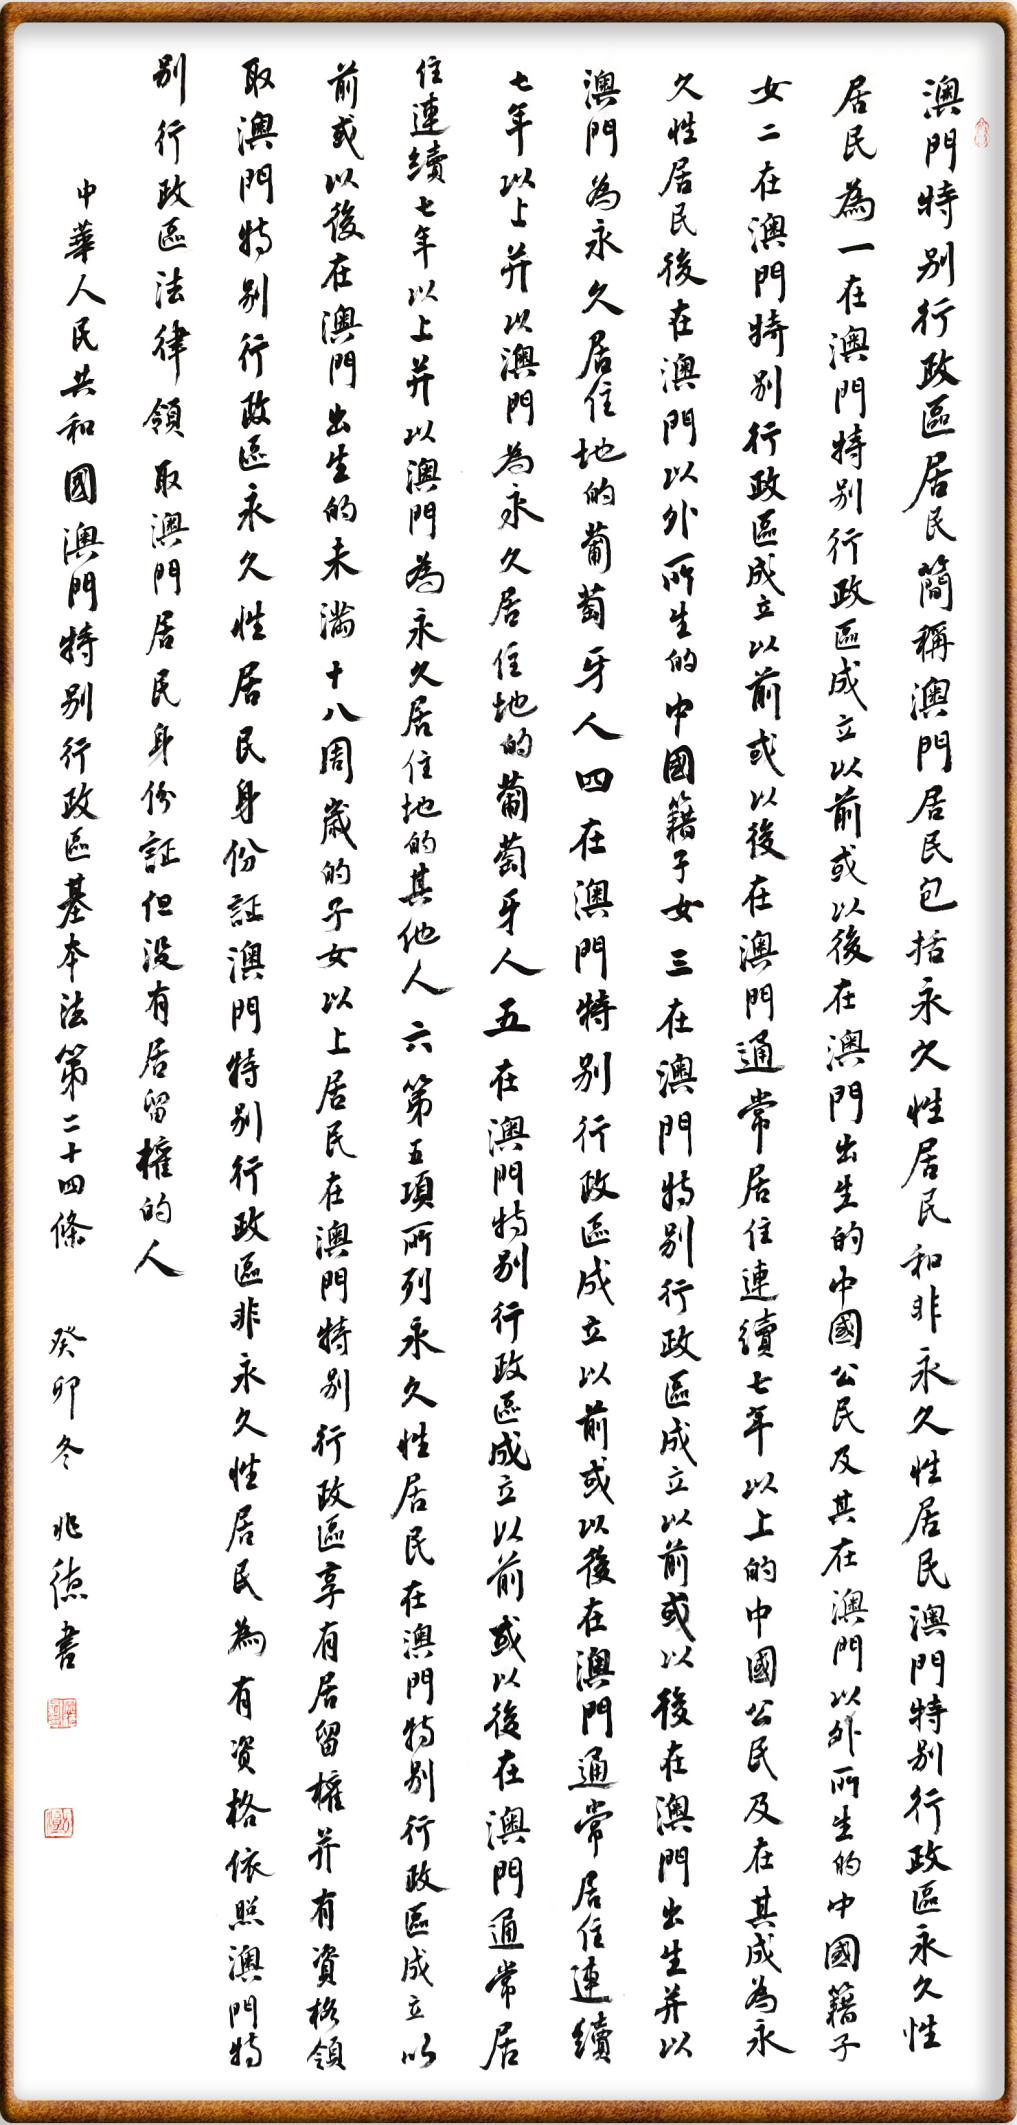 澳門特别行政區居民簡稱澳門居民包括永久性居民和非永久性居民澳門特别行政區永久性
居民為一在澳門特别行政區成立以前或以後在澳門出生的中國公民及其在澳門以外所生的中國籍子
女二在澳門特别行政區成立以前或以後在澳門通常居住連續七年以上的中國公民及在其成為永
久性居民後在澳門以外所生的中國籍子女三在澳門特别行政區成立以前或以後在澳門出生并以
澳門為永久居住地的葡萄牙人四在澳門特别行政區成立以前或以後在澳門通常居住連續
七年以上并以澳門為永久居住地的葡萄牙人五在澳門特别行政區成立以前或以後在澳門通常居
住連續七年以上并以澳門為永久居住地的其他人六第五項所列永久性居民在澳門特别行政區成立以
前或以後在澳門出生的未滿十八周歲的子女以上居民在澳門特别行政區享有居留權并有資格領
取澳門特别行政區永久性居民身份証澳門特别行政區非永久性居民為有資格依照澳門特
别行政區法律領取澳門居民身份証但没有居留權的人
中華人民共和國澳門特别行政區基本法第二十四條 癸卯冬 兆德書